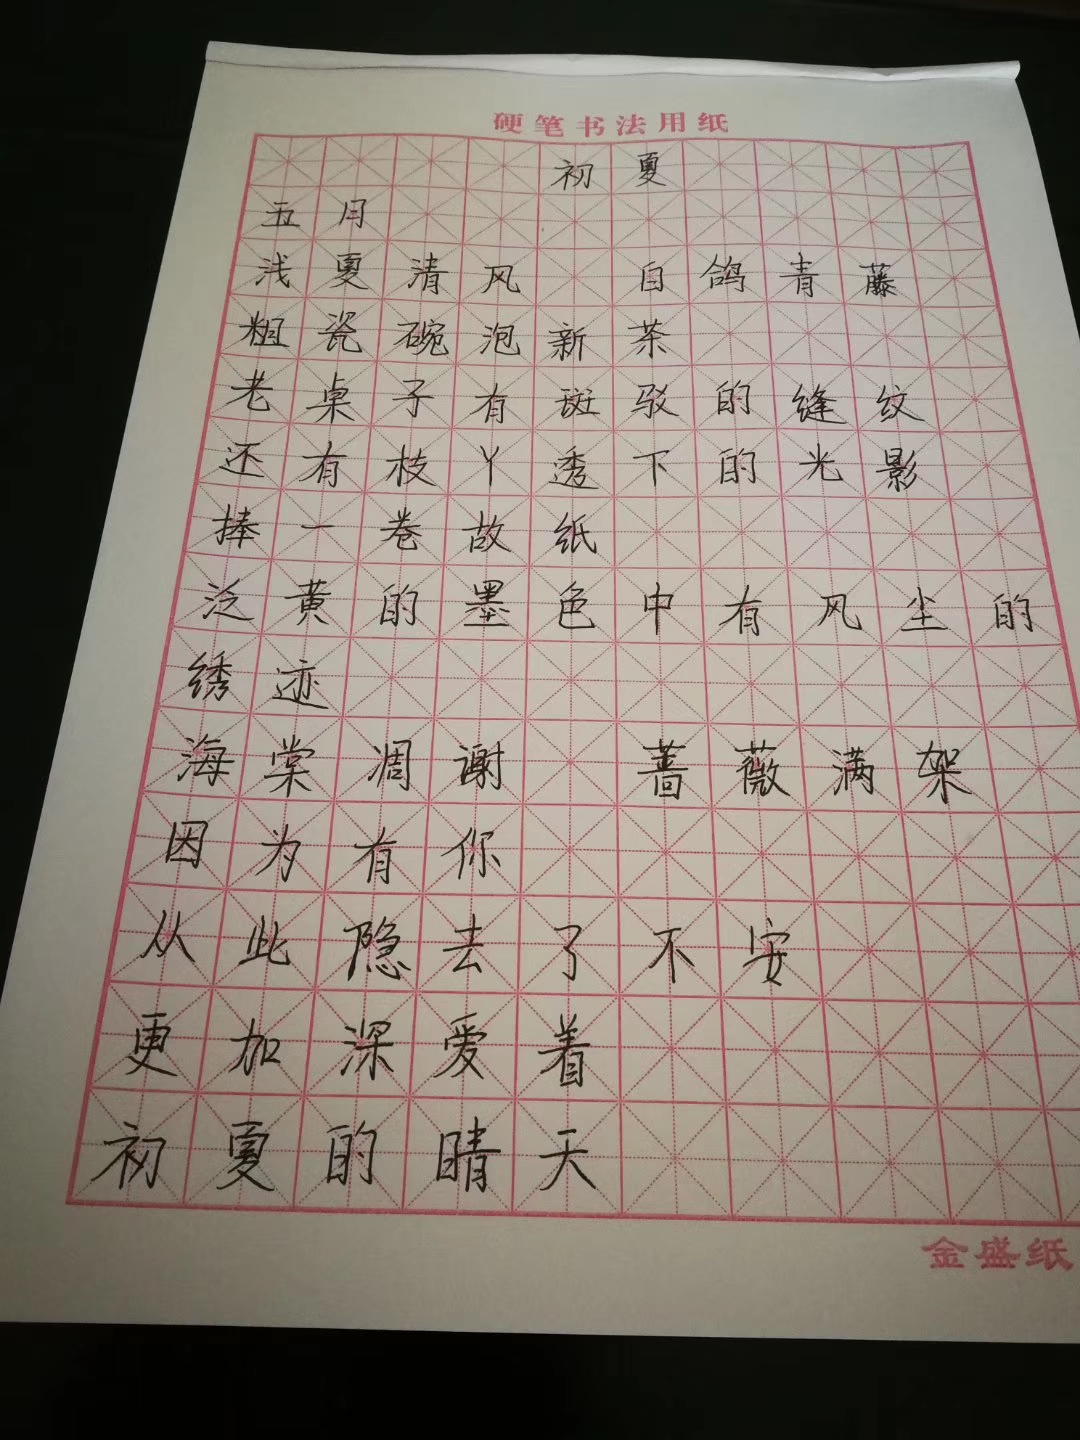 硬笔书法用纸
初夏
五月
浅夏清风 白鸽青藤
粗瓷碗泡新茶
老桌子有斑驳的缝纹
还有枝丫透下的光影
捧一卷故纸
泛黄的墨色中有风尘的
绣迹
海棠凋谢 蔷薇满架
因为有你
从此隐去了不安
更加深爱着
初夏的晴天
金盛纸